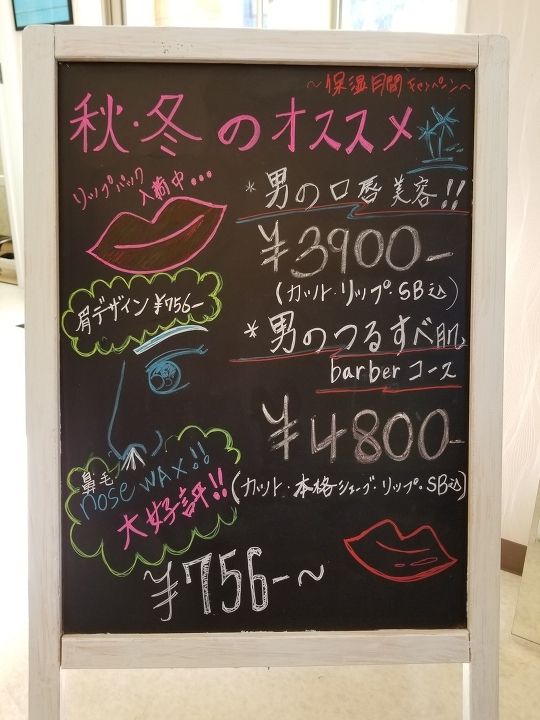 〜保湿月間キャンペーン〜
秋・冬のオススメ
リップパック
入荷中・・・
*男の口唇美容!!
¥3900-
(カット・リップ・SB込)
眉デザイン¥756-
*男のつるすべ肌
barberコース
¥4800-
(カット・本格シェーブ・リップ・SB込)
鼻毛
nose WAX!!
大好評!!
¥756-〜